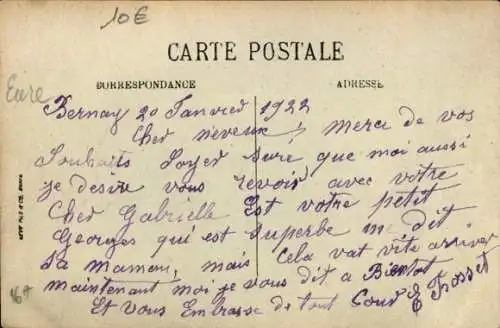 10€
CARTE POSTALE
CORRESPONDANCE
ADRESSE
Eure
Bernay 20 Janvred 1922
Cher neveux, Merci de vos
Souhaits Soyer Sure que moi aussi
je desire vous revoir avec votre
Cher Gabrielle Est votre petit
Georges qui est Superbe m dit
Sa Maman, mais Cela vat vite arriver
maintenant moi je vous dit a Bientot
Et Vous Embrasse de tout Coeur E Fosset